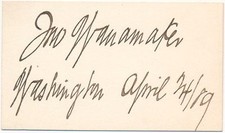 Jno Wanamaker
Washington April 24/89